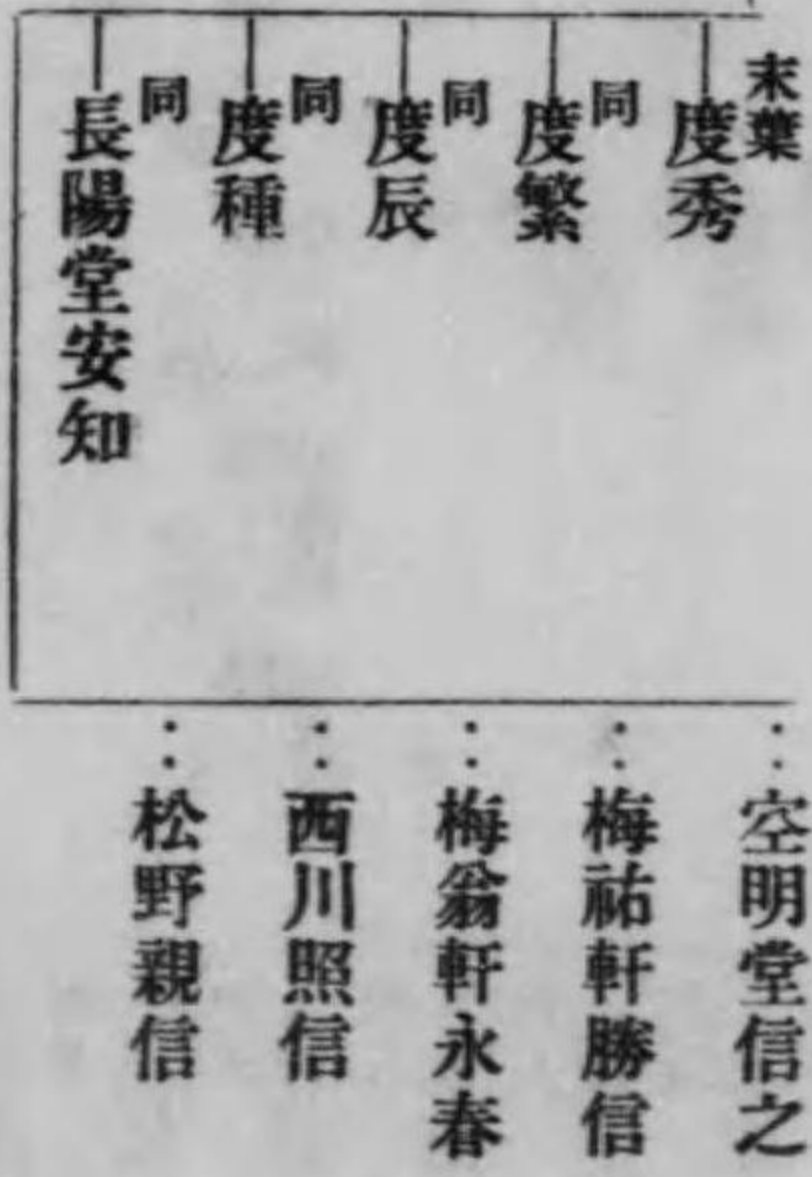 末葉
度秀
同
度繁
同
度辰
同
度種
同
長陽堂安知
：空明堂信之
：梅祐軒勝信
：梅翁軒永春
：西川照信
：松野親信